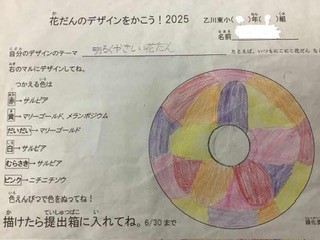 花だんのデザインをかこう！2025 乙川東小( )年( )組
名前
自分のデザインのテーマ 明るくやさしい花だん
たとえば、いつもにこにこ花だん
右のマルにデザインしてね。
つかえる色は
赤→サルビア
黄→マリーゴールド、メランポジウム
だいだい→マリーゴールド
白→サルビア
むらさき→サルビア
ピンク→ニチニチソウ
色えんぴつで色をぬってね！
描けたら提出箱に入れてね。6/30まで